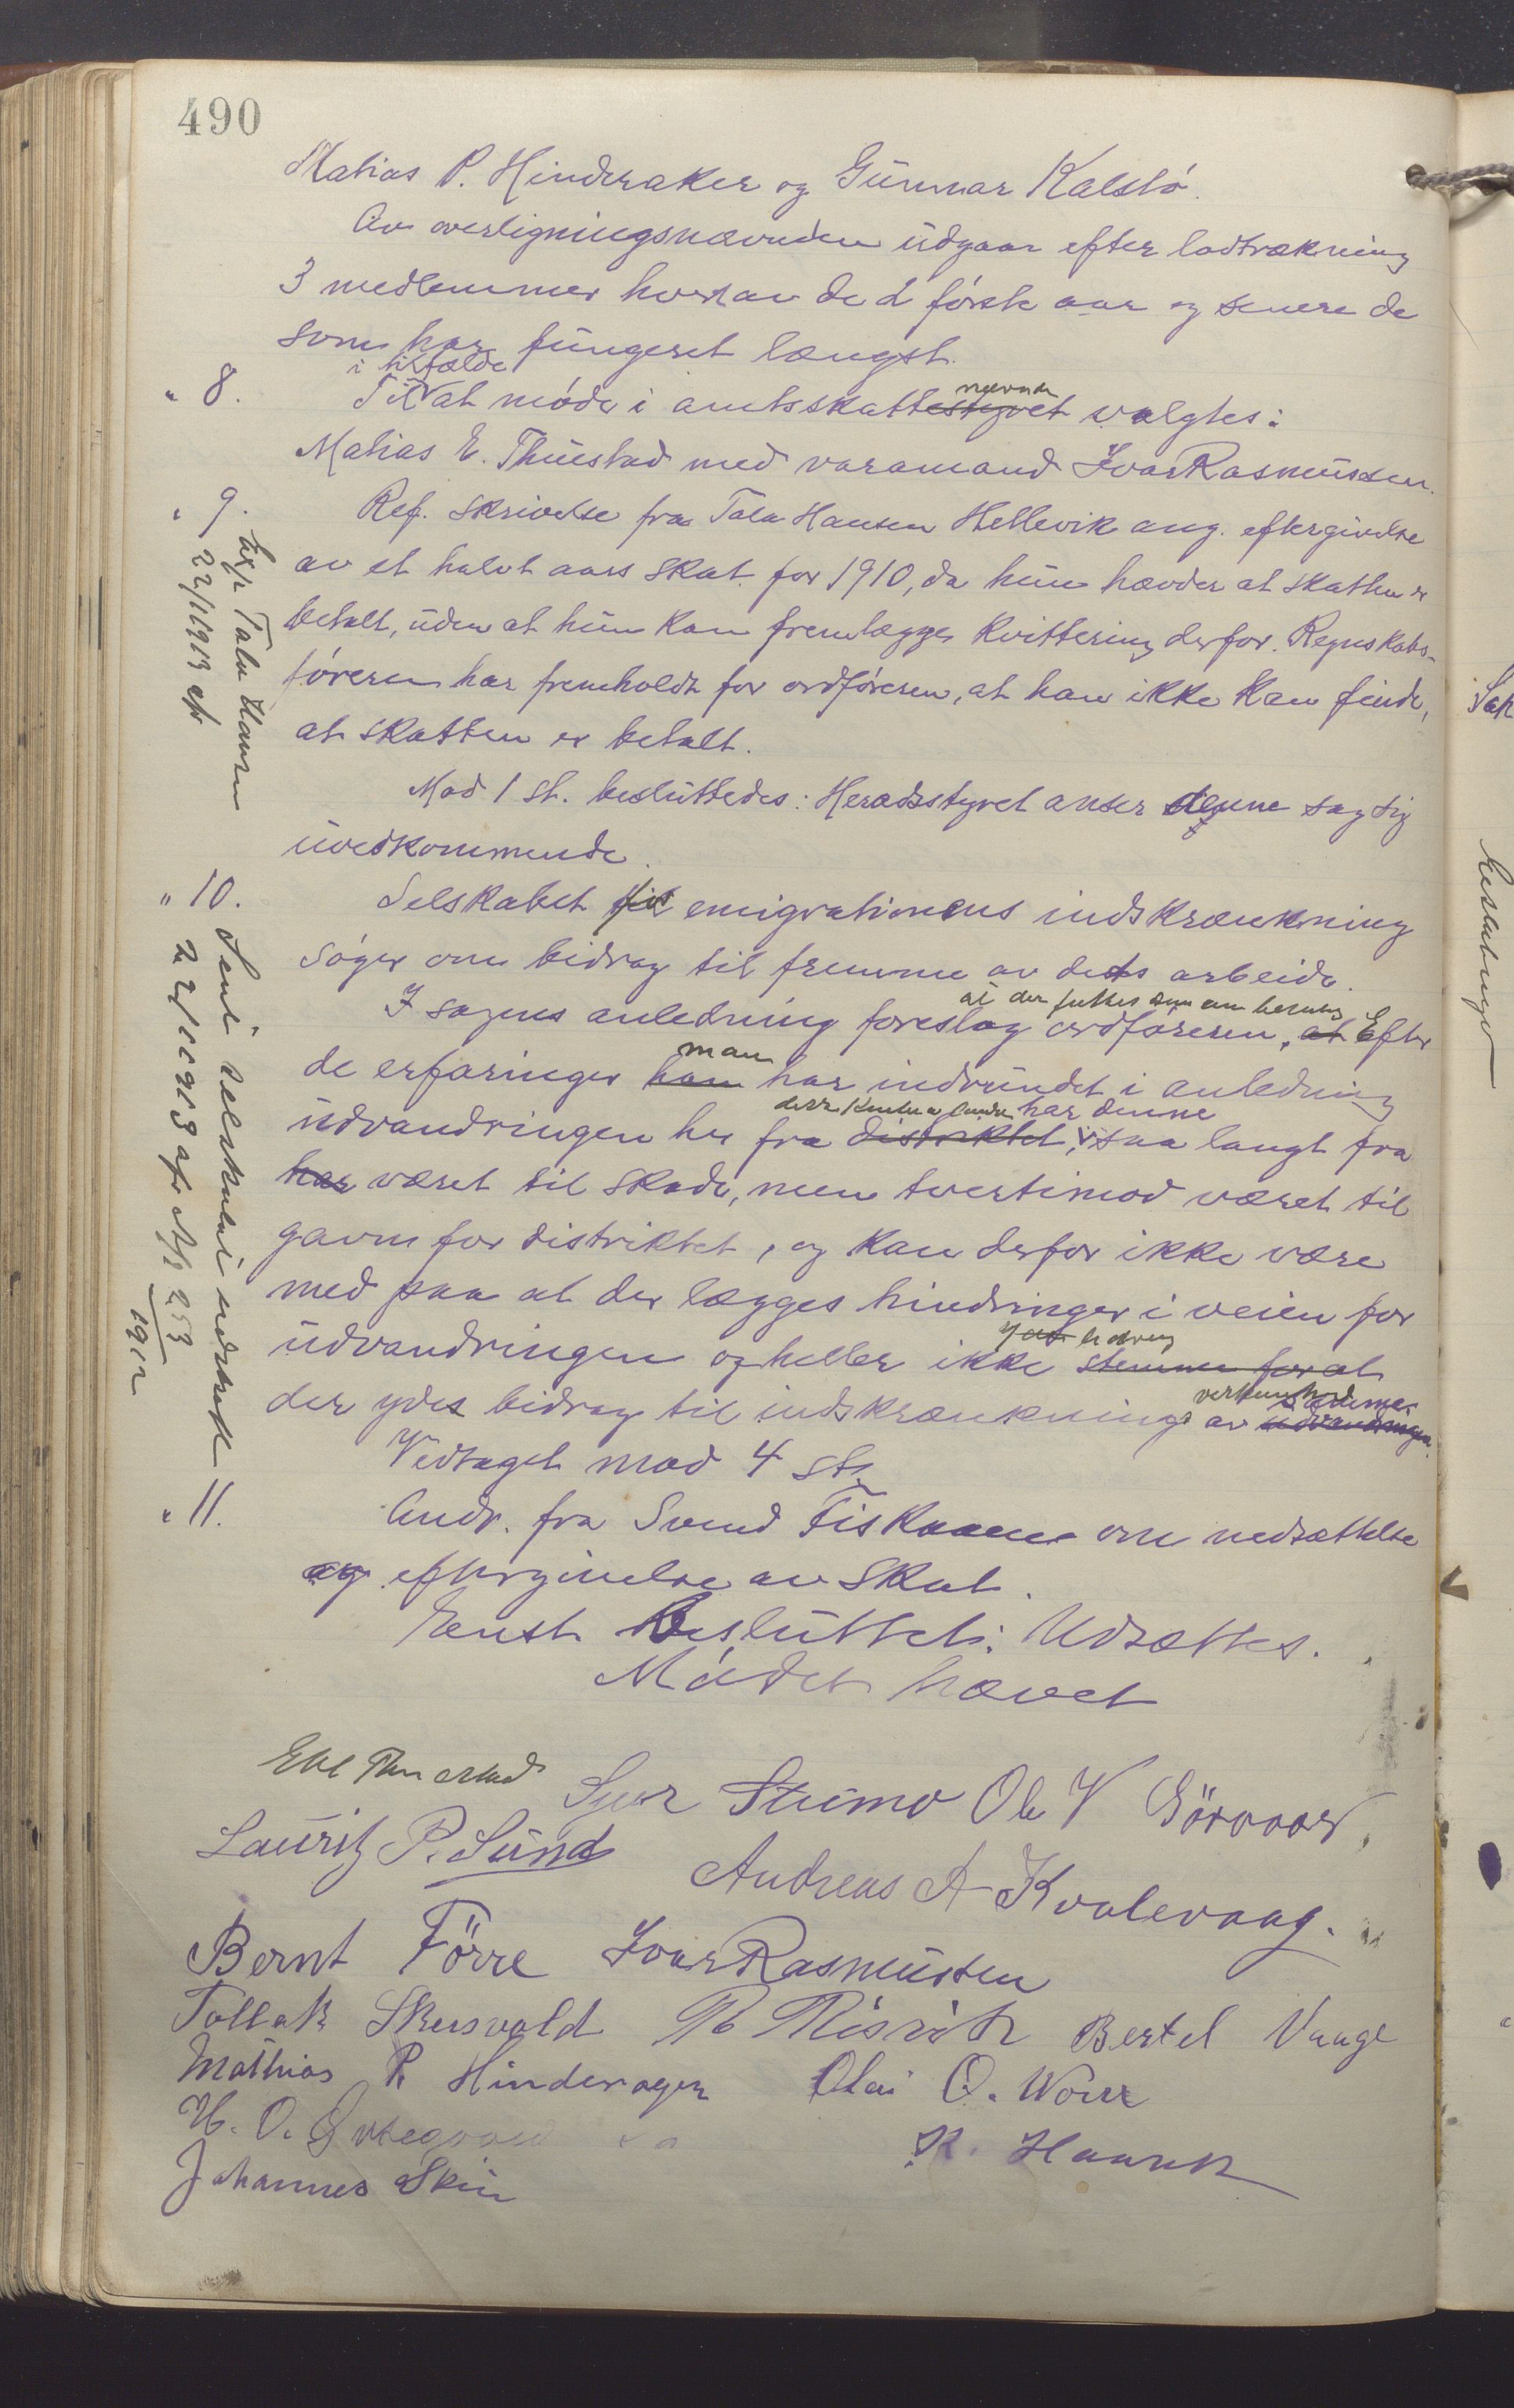 490
Mathias P. Hinderaker og Gunnar Kalstø.
Av overligningsnævnden udgaar efter lodtrækning
3 medlemmer hvert av de 2 første aar og senere de
som har fungeret længst.
i tilfælde
nævnde
" 8. Til at møde i amtsskattestyret valgtes:
Mathias E. Thuestad med varamand Ivar Rasmussen.
" 9. Ref. skrivelse fra Tala Hansen Hellevik ang. eftergivelse
av et halvt aars skat for 1910, da hun hævder at skatten er
betalt, uden at hun kan fremlægge kvittering derfor. Regnskabs-
føreren har fremholdt for ordføreren, at han ikke kan finde,
at skatten er betalt.
Mod 1 st. besluttedes: Heradsstyret anser denne sag sig
uvedkommende.
22/1 1913
" 10. Selskabet til emigrationens indskrænkning
søger om bidrag til fremme av dets arbeide.
at der fattes som en beslutn
I sagens anledning foreslog ordføreren, at Efter
man
de erfaringer han har indvundet i anledning
har denne
udvandringen her fra distriktet, saa langt fra
har været til skade, men tvertimod været til
gavn for distriktet, og kan derfor ikke være
med paa at der lægges hindringer i veien for
yde bidrag
udvandringen og heller ikke stemme for at
der ydes bidrag til indskrænkning av udvandringen.
Vedtaget mod 4 st.
Sendt selskabet utskrift
1912
" 11. Andr. fra Svend Fiskaaen om nedsættelse
og eftergivelse av skat.
Enst. besluttet: Udsættes.
Mødet hævet
Sjur Stumo Ole V Sørvaag,
Lauritz P. Sund
Andreas A Kvalevaag.
Bernt Førre Ivar Rasmussen
Tollak Skeisvold Bertel Vaage
Mathias P. Hinderager Olai O. Worre
H. O. Østegaard
K. Haavik
Johannes Skeie
Sak